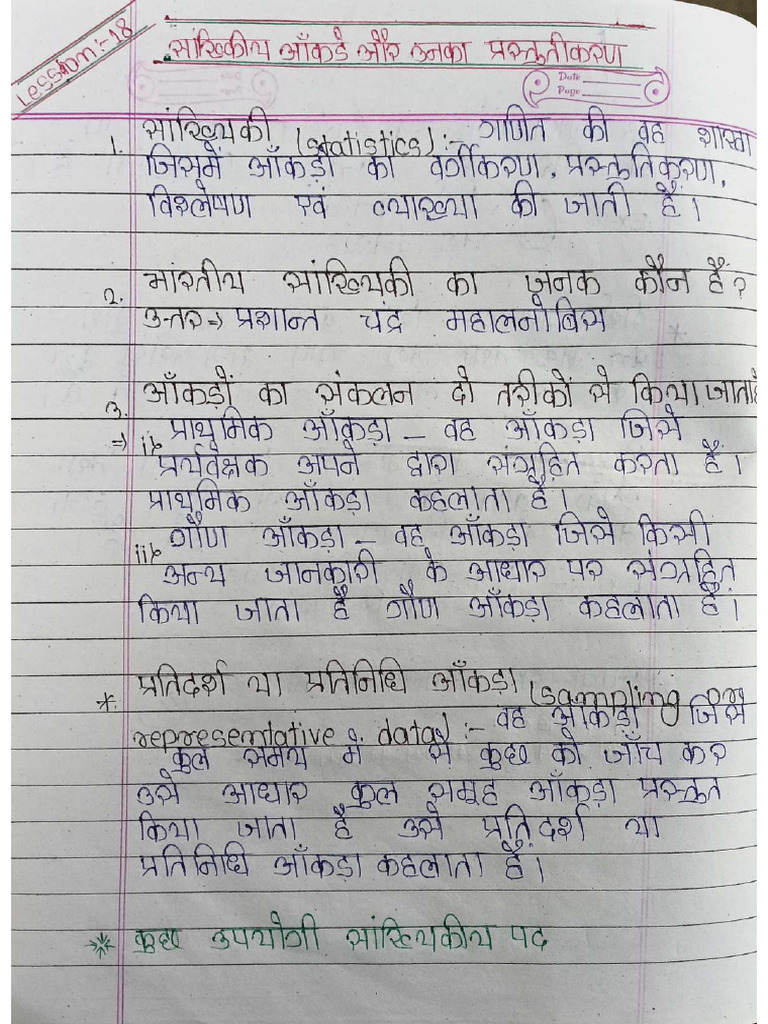 Lesson:-18
सांख्यिकीय आँकड़े और उनका प्रस्तुतीकरण
Date
Page
1. सांख्यिकी (statistics):- गणित की वह शाखा
जिसमें आँकड़ों का वर्गीकरण, प्रस्तुतिकरण,
विश्लेषण एवं व्याख्या की जाती है।
2. भारतीय सांख्यिकी का जनक कौन हैं?
उत्तर⇒ प्रशान्त चंद्र महालनोबिस
3. आँकड़ों का संकलन दो तरीकों से किया जाता है
⇒ i) प्राथमिक आँकड़ा – वह आँकड़ा जिसे
प्रर्यवेक्षक अपने द्वारा संग्रहित करता है।
प्राथमिक आँकड़ा कहलाता है।
ii) गौण आँकड़ा – वह आँकड़ा जिसे किसी
अन्य जानकारी के आधार पर संग्रहित
किया जाता है गौण आँकड़ा कहलाता है।
*. प्रतिदर्श या प्रतिनिधि आँकड़ा (sampling or
representative data):- वह आँकड़ा जिसे
कुल समय में से कुछ को जाँच कर
उसे आधार कुल समूह आँकड़ा प्रस्तुत
किया जाता है उसे प्रतिदर्श या
प्रतिनिधि आँकड़ा कहलाता है।
* कुछ उपयोगी सांख्यिकीय पद